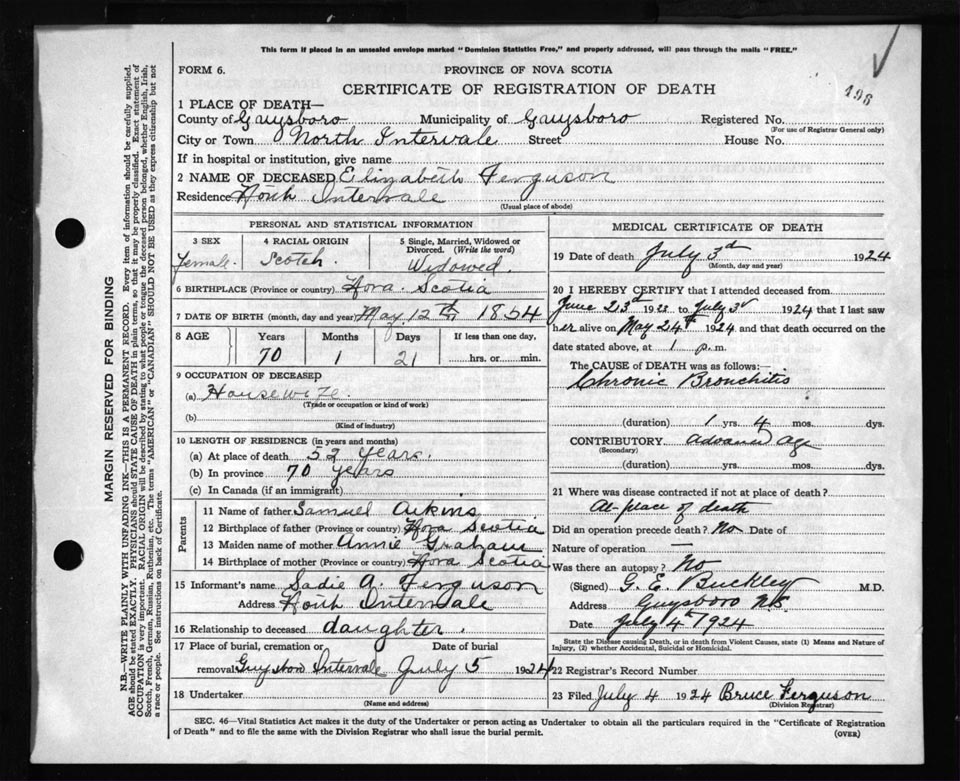 This form if placed in an unsealed envelope marked "Dominion Statistics Free," and properly addressed, will pass through the mails "FREE."
FORM 6.
PROVINCE OF NOVA SCOTIA
CERTIFICATE OF REGISTRATION OF DEATH
498
1 PLACE OF DEATH—
County of Guysboro Municipality of Guysboro Registered No.
(For use of Registrar General only)
City or Town North Intervale Street House No.
If in hospital or institution, give name
2 NAME OF DECEASED Elizabeth Ferguson
Residence North Intervale
(Usual place of abode)
PERSONAL AND STATISTICAL INFORMATION
3 SEX
female.
4 RACIAL ORIGIN
Scotch
5 Single, Married, Widowed or
Divorced. (Write the word)
Widowed.
6 BIRTHPLACE (Province or country) Nova Scotia
7 DATE OF BIRTH (month, day and year) May 12th 1854
8 AGE
Years Months Days If less than one day,
70 1 21 hrs. or min.
9 OCCUPATION OF DECEASED
(a) Housewife
(Trade or occupation or kind of work)
(b)
(Kind of industry)
10 LENGTH OF RESIDENCE (in years and months)
(a) At place of death 52 years.
(b) In province 70 years
(c) In Canada (if an immigrant)
Parents
11 Name of father Samuel Aikins
12 Birthplace of father (Province or country) Nova Scotia
13 Maiden name of mother Annie Graham
14 Birthplace of mother (Province or country) Nova Scotia
15 Informant's name Sadie A. Ferguson
Address North Intervale
16 Relationship to deceased daughter.
17 Place of burial, cremation or Date of burial
removal Guysboro Intervale July 5 1924
18 Undertaker
(Name and address)
MEDICAL CERTIFICATE OF DEATH
19 Date of death July 3d 1924
(Month, day and year)
20 I HEREBY CERTIFY that I attended deceased from
June 23d 1923 to July 3d 1924 that I last saw
her alive on May 24th 1924 and that death occurred on the
date stated above, at 1 p.m.
The CAUSE of DEATH was as follows:—
Chronic Bronchitis
(duration) 1 yrs. 4 mos. dys.
CONTRIBUTORY advanced age
(Secondary)
(duration) yrs. mos. dys.
21 Where was disease contracted if not at place of death?
At place of death
Did an operation precede death? No Date of
Nature of operation —
Was there an autopsy? No
(Signed) G. E. Buckley M.D.
Address Guysboro N.S.
Date July 4th 1924
State the Disease causing Death, or in death from Violent Causes, state (1) Means and Nature of
Injury, (2) whether Accidental, Suicidal or Homicidal.
22 Registrar's Record Number
23 Filed July 4 1924 Bruce Ferguson
(Division Registrar)
SEC. 46—Vital Statistics Act makes it the duty of the Undertaker or person acting as Undertaker to obtain all the particulars required in the "Certificate of Registration
of Death" and to file the same with the Division Registrar who shall issue the burial permit.
(OVER)
MARGIN RESERVED FOR BINDING
N.B.—WRITE PLAINLY WITH UNFADING INK—THIS IS A PERMANENT RECORD. Every item of information should be carefully supplied.
AGE should be stated EXACTLY. PHYSICIANS should STATE CAUSE OF DEATH in plain terms, so that it may be properly classified. Exact statement of
OCCUPATION is very important. RACIAL ORIGIN will be described by stating to what people or tongue the deceased person belonged, whether English, Irish,
Scotch, French, German, Russian, Ruthenian, etc. The terms "AMERICAN" or "CANADIAN" SHOULD NOT BE USED as they express citizenship but not
a race or people. See instructions on back of Certificate.